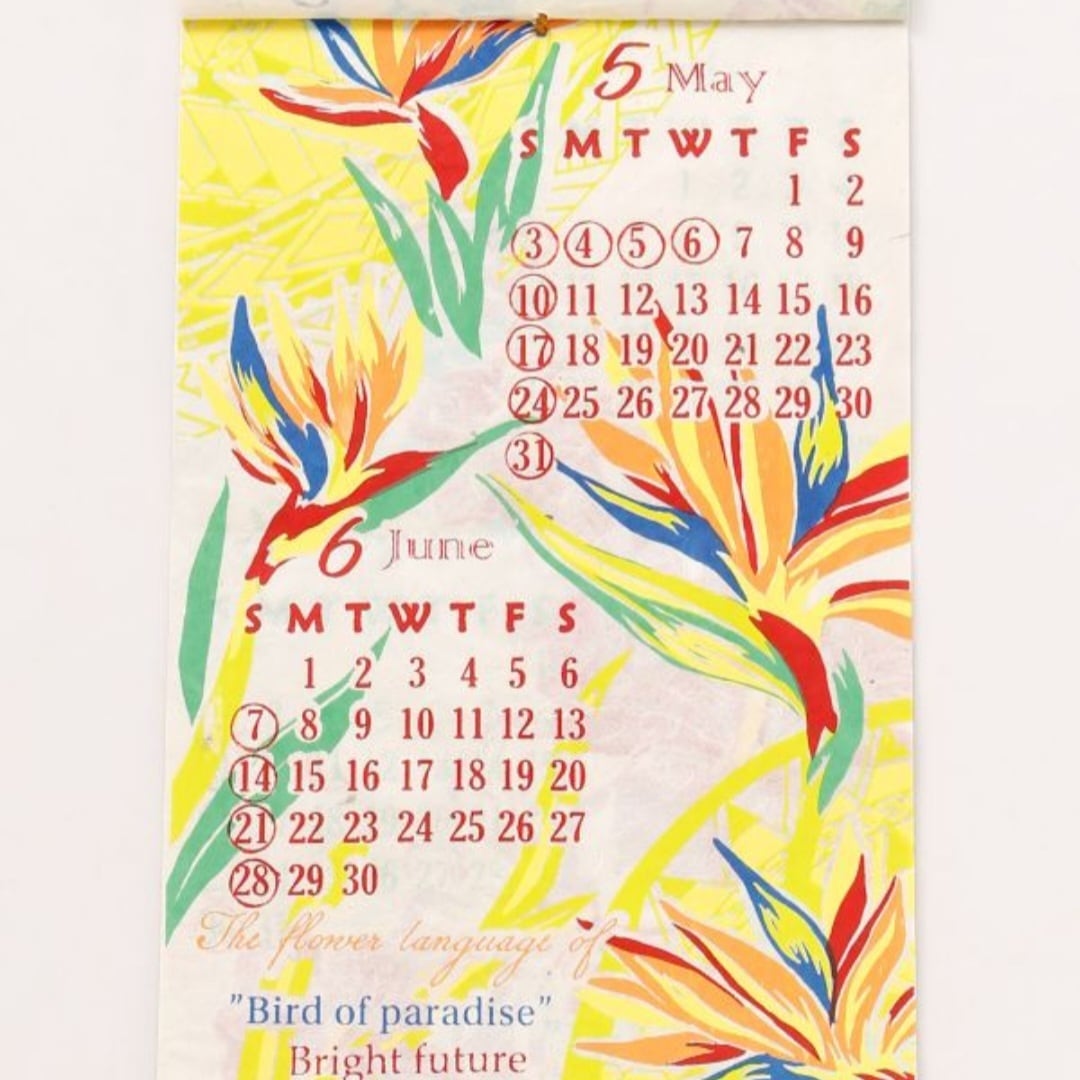 5 May
S M T W T F S
1 2
3 4 5 6 7 8 9
10 11 12 13 14 15 16
17 18 19 20 21 22 23
24 25 26 27 28 29 30
31
6 June
S M T W T F S
1 2 3 4 5 6
7 8 9 10 11 12 13
14 15 16 17 18 19 20
21 22 23 24 25 26 27
28 29 30
The flower language of
"Bird of paradise"
Bright future